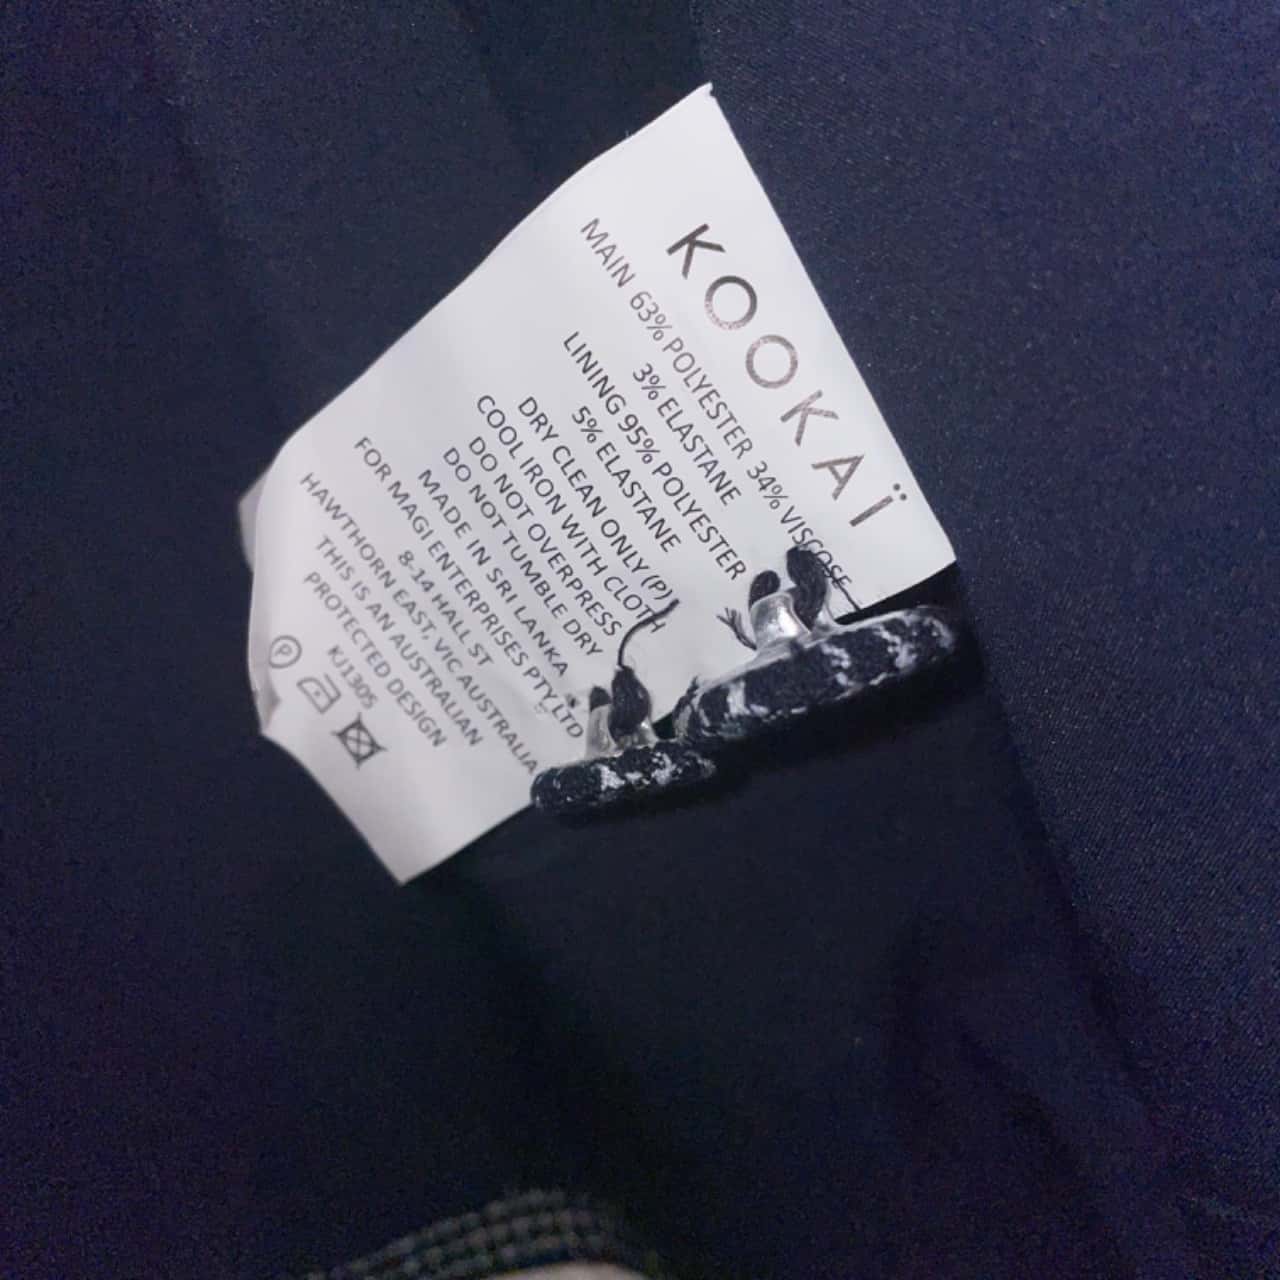 KOOKAÏ
MAIN 63% POLYESTER 34% VISCOSE
3% ELASTANE
LINING 95% POLYESTER
5% ELASTANE
DRY CLEAN ONLY (P)
COOL IRON WITH CLOTH
DO NOT OVERPRESS
DO NOT TUMBLE DRY
MADE IN SRI LANKA
FOR MAGI ENTERPRISES PTY.LTD
8-14 HALL ST
HAWTHORN EAST, VIC AUSTRALIA
THIS IS AN AUSTRALIAN
PROTECTED DESIGN
KJ1305
P